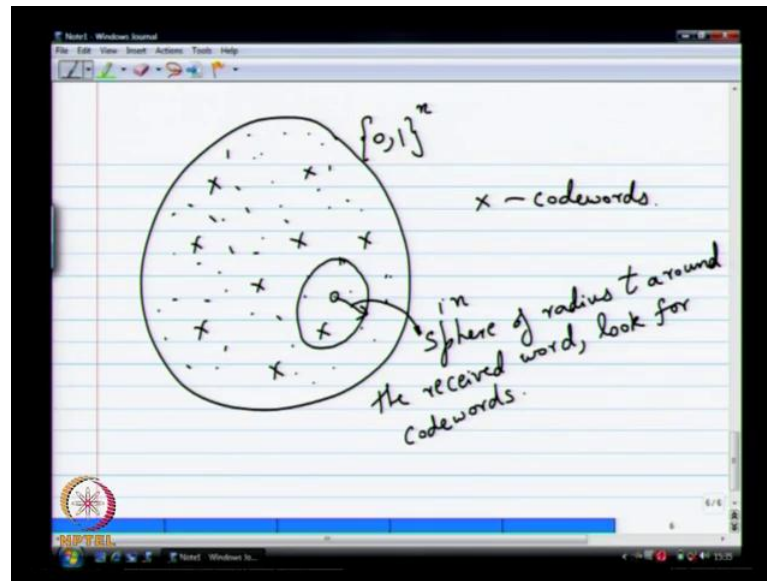 Note1 - Windows Journal
File Edit View Insert Actions Tools Help
{0,1}^n
x - codewords.
in
sphere of radius t around
the received word, look for
codewords.
6/6
6
NPTEL
Note1 - Windows Jo...
15:35